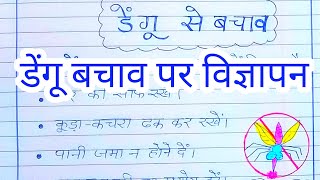 डेंगू से बचाव
डेंगू बचाव पर विज्ञापन
को साफ रखें।
कूड़ा-कचरा ढक कर रखें।
पानी जमा न होने दें।